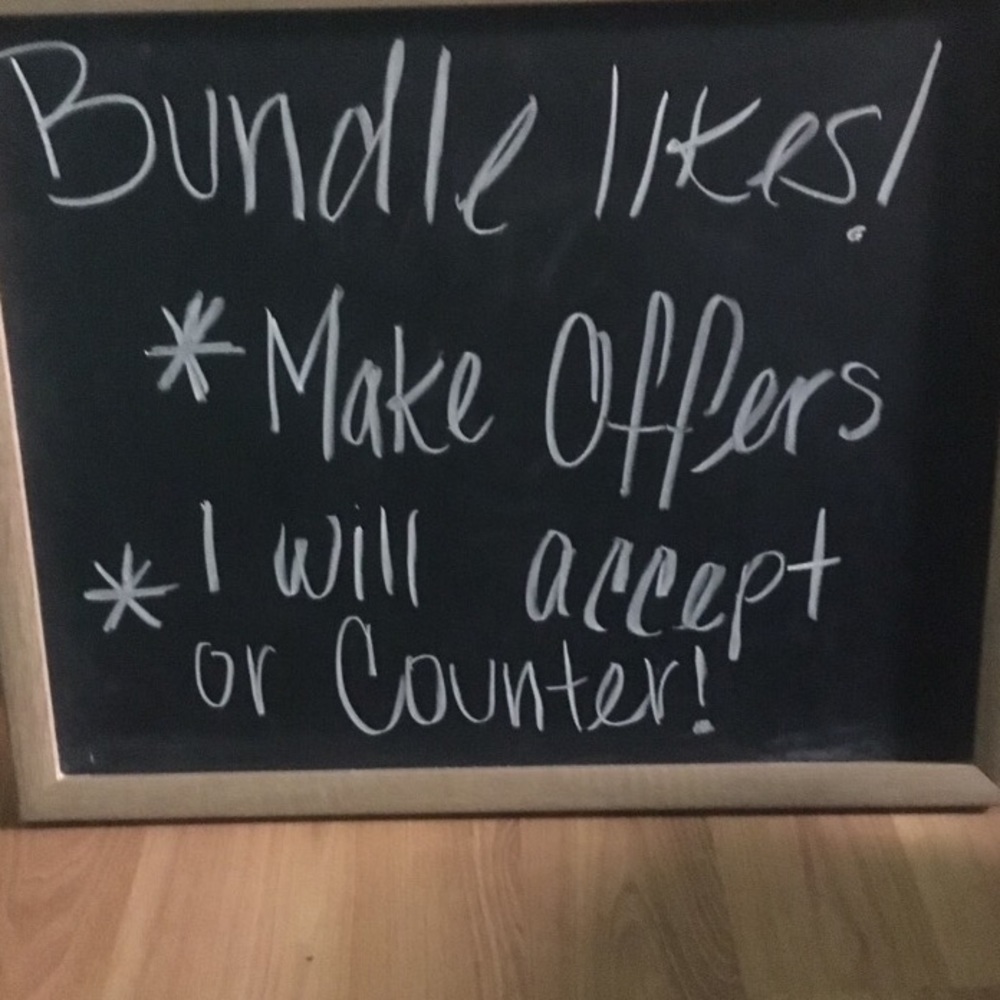 Bundle likes!
* Make Offers
* I will accept
or Counter!